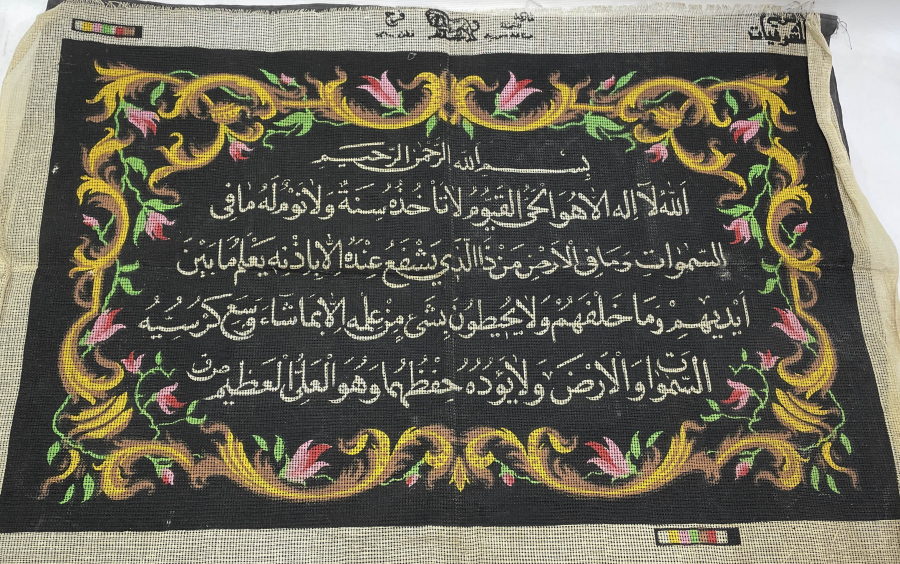 بسم الله الرحمن الرحيم
الله لا اله الا هو الحي القيوم لا تأخذه سنة ولا نوم له ما في
السموات وما في الارض من ذا الذي يشفع عنده الا باذنه يعلم ما بين
ايديهم وما خلفهم ولا يحيطون بشئ من علمه الا بما شاء وسع كرسيه
السموات والارض ولا يؤده حفظهما وهو العلي العظيم